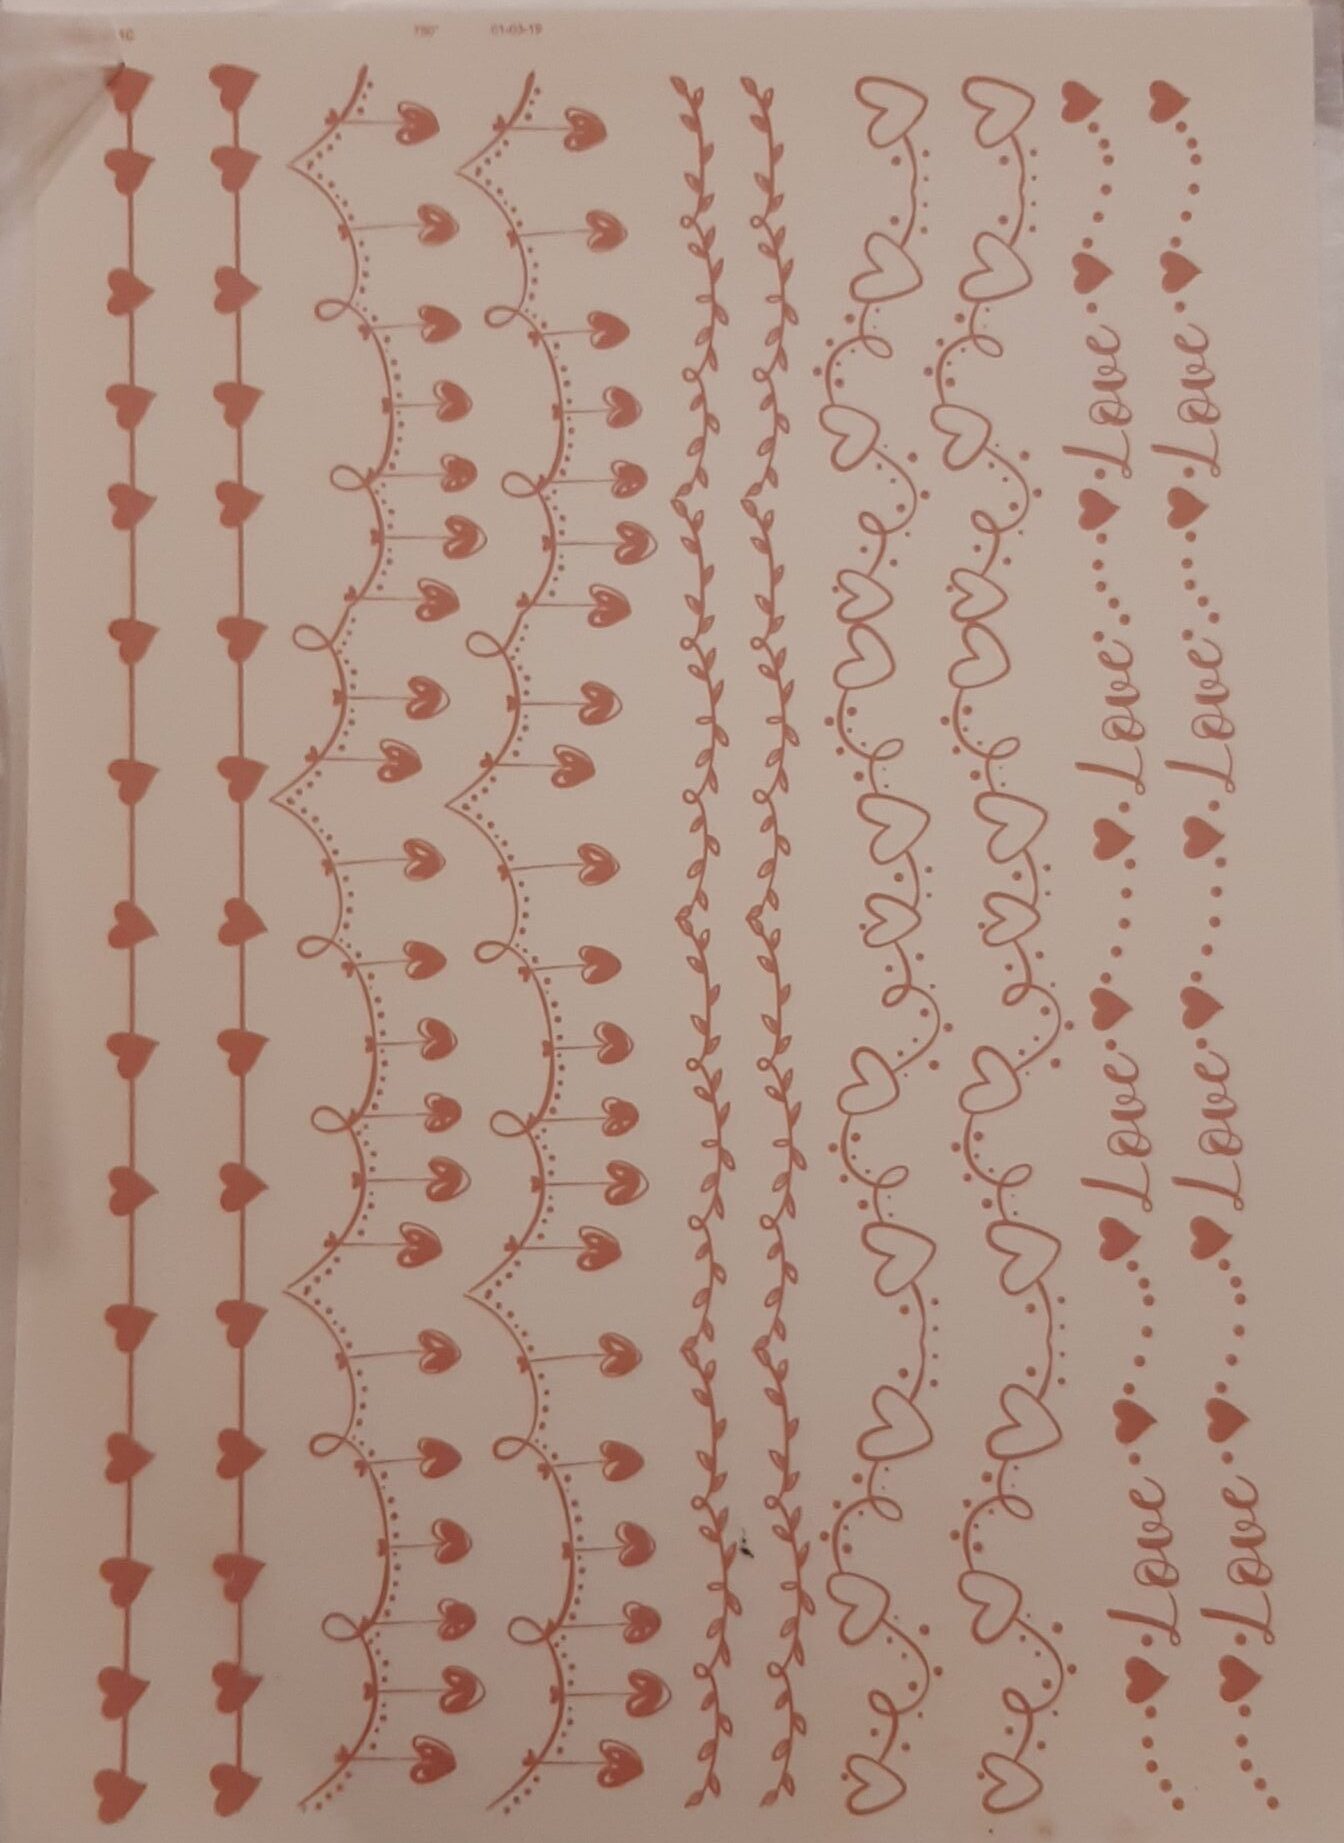 10 780° 01-03-19
Love Love
Love Love
Love Love
Love Love